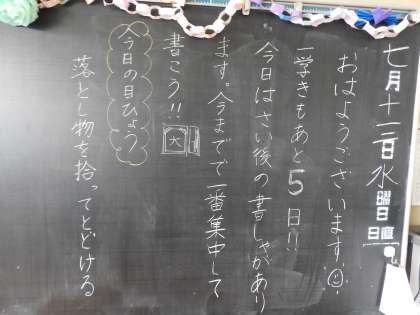 七月十三日水曜日
日直
おはようございます。
一学きもあと5日!!
今日はさい後の書しゃがあり
ます。今までで一番集中して
書こう!! 大
今日の目ひょう
落とし物を拾ってとどける